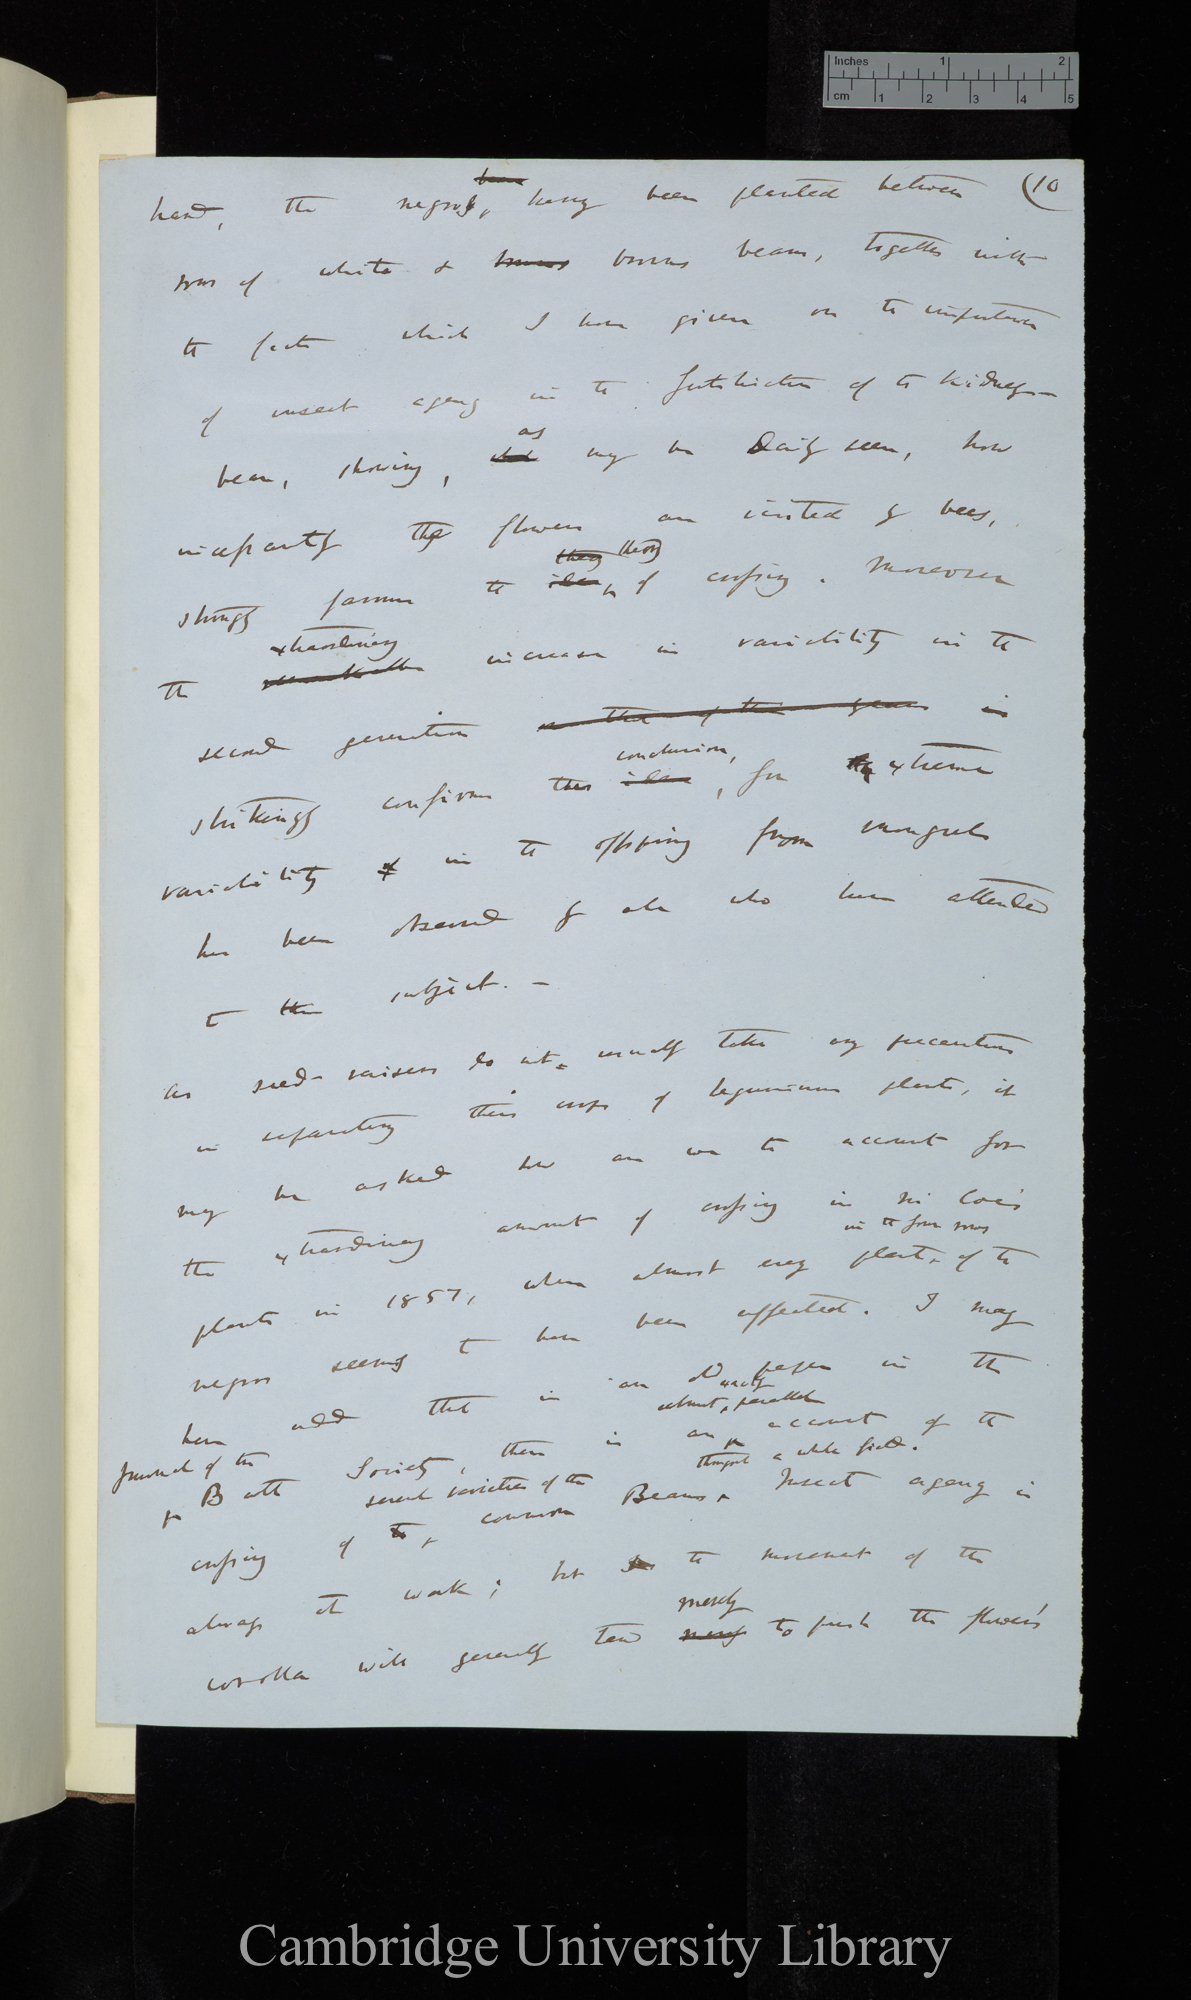 Inches 1 2
cm 1 2 3 4 5
(10
hand, the negros ~~beans~~, having been planted between
rows of white & ~~brown~~ brown beans, together with
the facts which I have given on the importance
of insect agency in the fertilisation of the kidney-
bean, showing, ~~what~~ as may be daily seen, how
incessantly the flowers are visited by bees,
strongly favour the ~~idea~~ ~~theory~~ theory of crossing. Moreover
the ~~remarkable~~ extraordinary increase in variability in the
second generation ~~in~~
strikingly confirms this ~~idea~~ conclusion, for extreme
variability in the offspring from mongrels
has been observed by all who have attended
to the subject. —
As seed-raisers do not usually take any precautions
in separating their crops of leguminous plants, it
may be asked how are we to account for
the extraordinary amount of crossing in Mr Coe's
plants in 1857, when almost every plant in the four rows of the
negros seems to have been affected. I may
here add that in an old paper in the
Journal of the Bath Society, there is an almost exactly parallel account of the
crossing of several varieties of the common Beans throughout a whole field. Insect agency is
always at work; but the movement of the
corolla will generally tend ~~merely~~ merely to push the flower's
Cambridge University Library